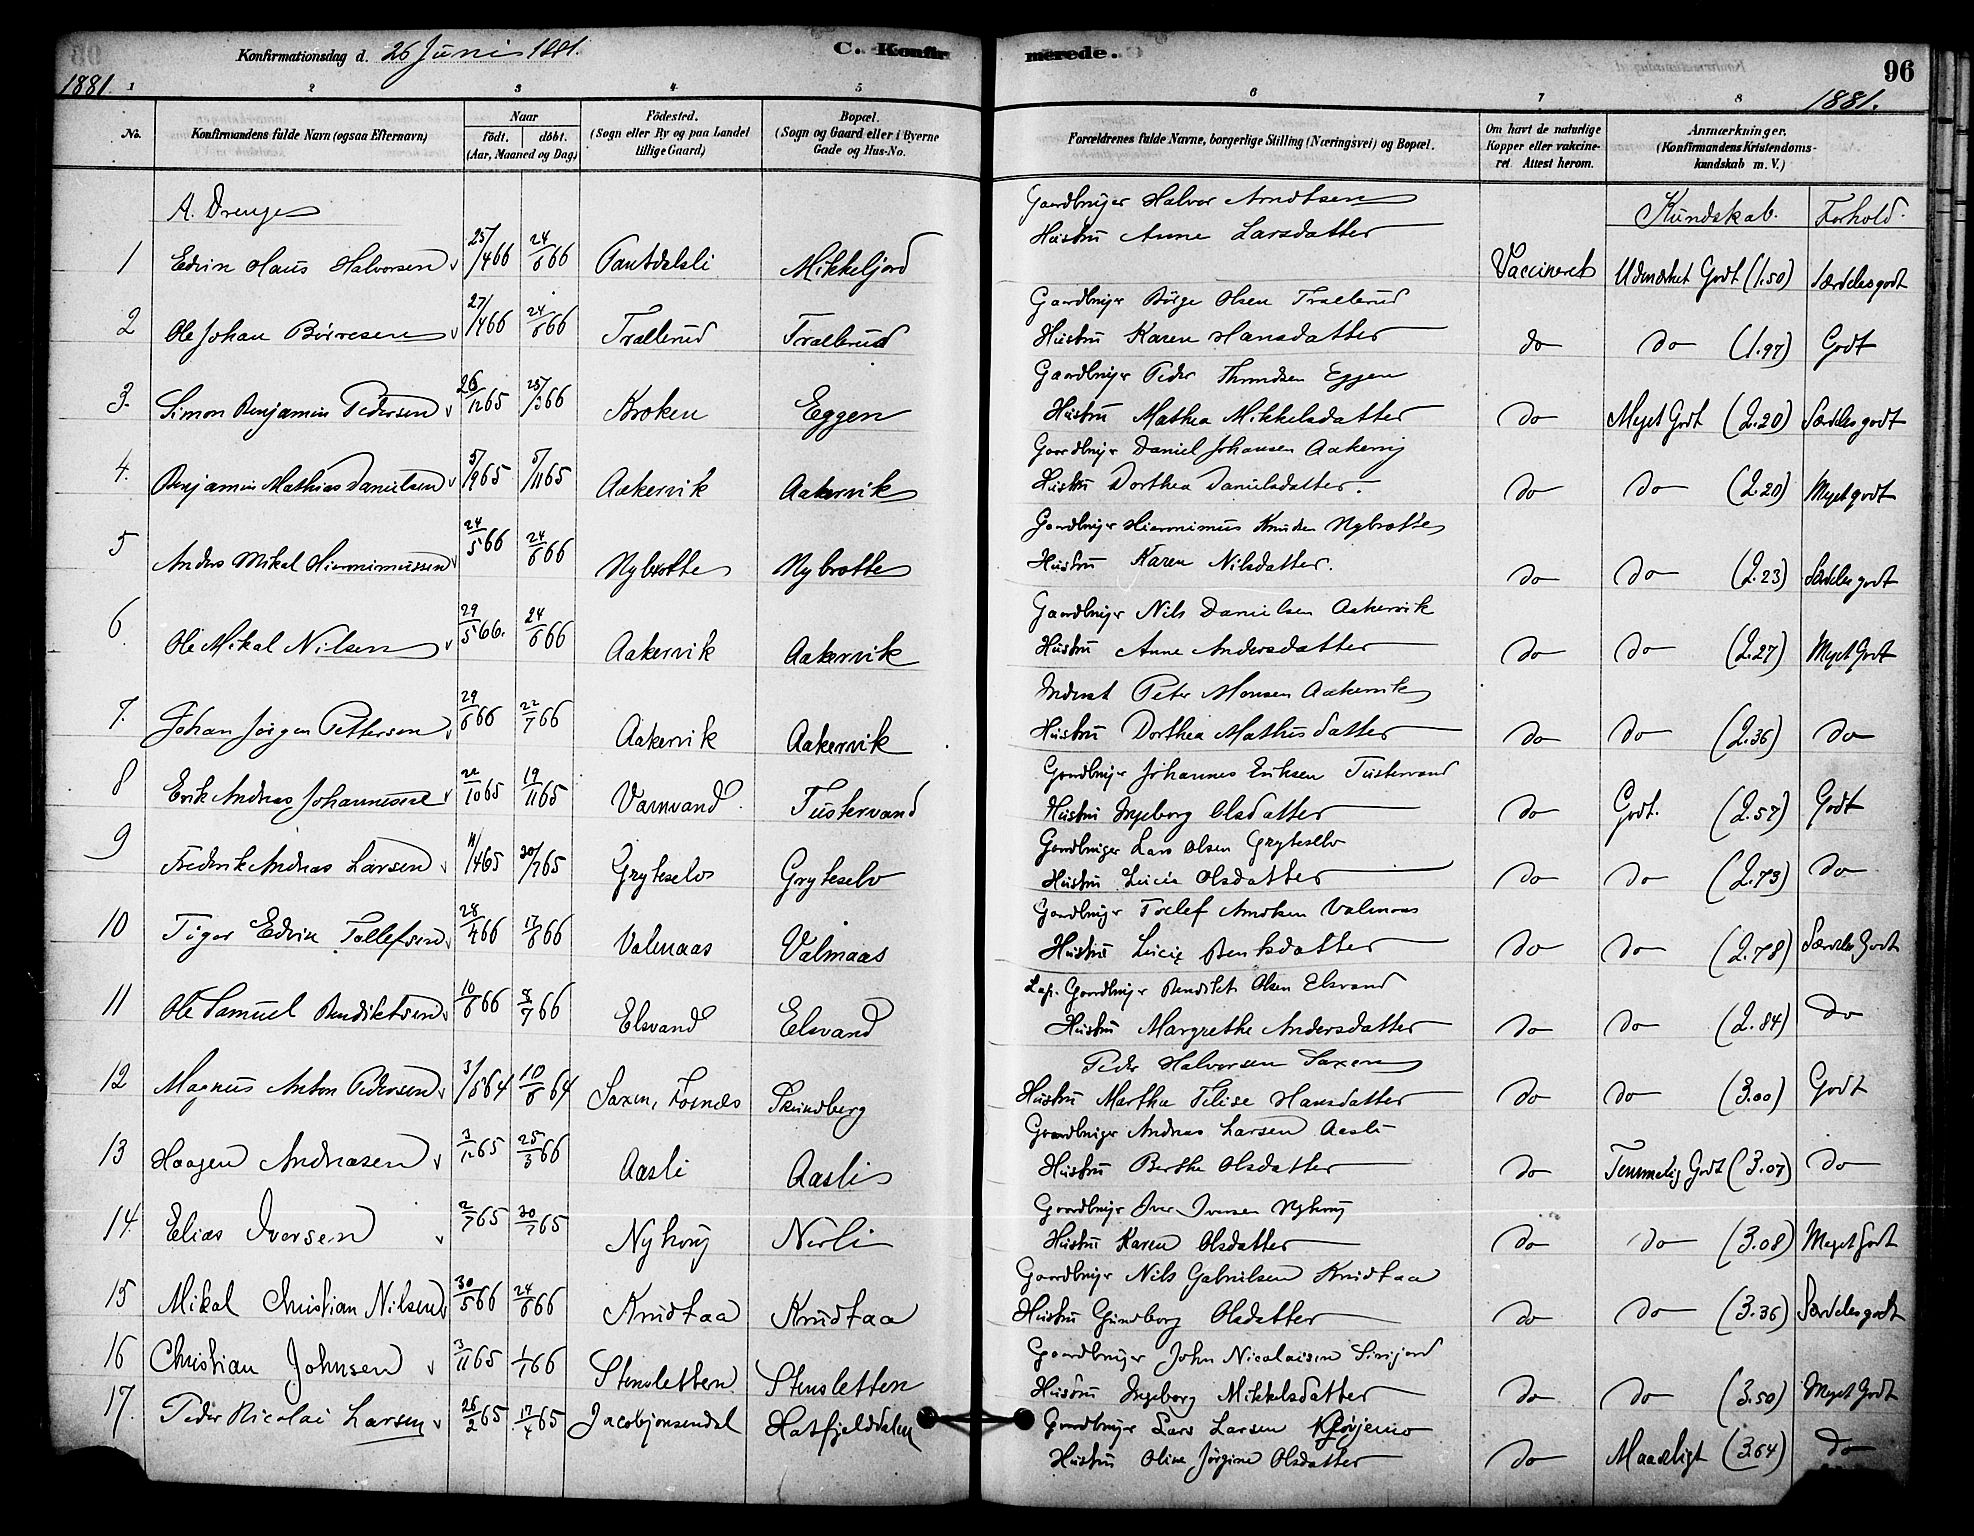 Konfirmationsdag d. 26 Juni 1881. C. Konfirmerede. 96
1881. 1 2 3 4 5 6 7 8 1881.
No. Konfirmandens fulde Navn (ogsaa Efternavn) Naar født. døbt. (Aar, Maaned og Dag) Fødested. (Sogn eller By og paa Landet tillige Gaard) Bopæl. (Sogn og Gaard eller i Byerne Gade og Hus-No. Forældrenes fulde Navne, borgerlige Stilling (Næringsvei) og Bopæl. Om havt de naturlige Kopper eller vakcineret. Attest herom. Anmærkninger. (Konfirmandens Kristendomskundskab m. V.)
A. Drenge Gaardbruger Halvor Arndtsen Kundskab. Forhold.
Hustru Anne Larsdatter
1 Edvin Hans Halvorsen 25/4 66 24/6 66 Pantdalsli Mikkeljord Vaccineret Udmærket Godt (1.50) Særdeles godt
Gaardbruger Børge Olsen Trællerud
2 Ole Johan Børresen 27/4 66 24/6 66 Trællerud Trællerud Hustru Karen Hansdatter do do (1.97) Godt
Gaardbruger Peder Eggen
3. Simon Benjamin Pedersen 26/12 65 25/3 66 Kroken Eggen Hustru Mathea Mikkelsdatter do Meget Godt (2.20) Særdeles godt
Gaardbruger Daniel Johansen Aakervig
4. Benjamin Mathias Danielsen 5/9 65 5/11 65 Aakervik Aakervik Hustru Dorthea Danielsdatter. do do (2.20) Meget godt
Gaardbruger Hieronimus Knudsen Nybrotte
5 Anders Mikal Hieronimussen 24/5 66 24/6 66 Nybrotte Nybrotte Hustru Karen Nilsdatter. do do (2.23) Særdeles godt
Gaardbruger Nils Danielsen Aakervik
6. Ole Mikal Nilsen 29/5 66. 24/6 66 Aakervik Aakervik Hustru Anne Andersdatter do do (2.27) Meget Godt
Inderst Peter Monsen Aakervik
7. Johan Jørgen Pettersen 29/6 66 22/7 66 Aakervik Aakervik Hustru Dorthea Mathisdatter do do (2.36) do
Gaardbruger Johannes Eriksen Tustervand
8 Erik Andreas Johannessen 22/10 65 19/11 65 Varnvand Tustervand Hustru Ingeborg Olsdatter do Godt. (2.57) Godt
Gaardbruger Lars Olsen Gryteselv
9 Fredrik Andreas Larsen 11/4 65 30/7 65 Gryteselv Gryteselv Hustru Lucie Olsdatter do do (2.73) do
Gaardbruger Tollef Arntsen Valmaas
10 Tiger Edvin Tollefsen 28/4 66 17/6 66 Valmaas Valmaas Hustru Lucie Bentsdatter do do (2.78) Særdeles Godt
Lap. Gaardbruger Bendikt Olsen Elsvand
11 Ole Samuel Bendiktsen 10/6 66 8/7 66 Elsvand Elsvand Hustru Margrethe Andersdatter do do (2.84) do
Peder Halvorsen Saxen
12 Magnus Anton Pedersen 3/5 64 10/6 64 Saxen, Foenæs Skundberg Hustru Martha Felise Hansdatter do do (3.00) Godt
Gaardbruger Andreas Larsen Aasli
13 Haagen Andreasen 3/12 65 25/3 66 Aasli Aasli Hustru Berthe Olsdatter do Temmelig Godt (3.07) do
Gaardbruger Iver Iversen Nyhoug
14. Elias Iversen 2/7 65 30/7 65 Nyhoug Nerli Hustru Karen Olsdatter do do (3.08) Meget Godt
Gaardbruger Nils Gabrielsen Krudtaa
15 Mikal Christian Nilsen 30/5 66 24/6 66 Krudtaa Krudtaa Hustru Gundborg Olsdatter do do (3.36) Særdeles godt
Gaardbruger John Nicolaisen Sirijord
16 Christian Johnsen 3/11 65 1/1 66 Stensletten Stensletten Hustru Ingeborg Mikkelsdatter do do (3.50) Meget Godt
17. Peder Nicolai Larsen 26/2 65 17/4 65 Jacobjonsendal Hatfjelddalen Gaardbruger Lars Larsen
Hustru Oline Jørgine Olsdatter do Maadeligt (3.64) do